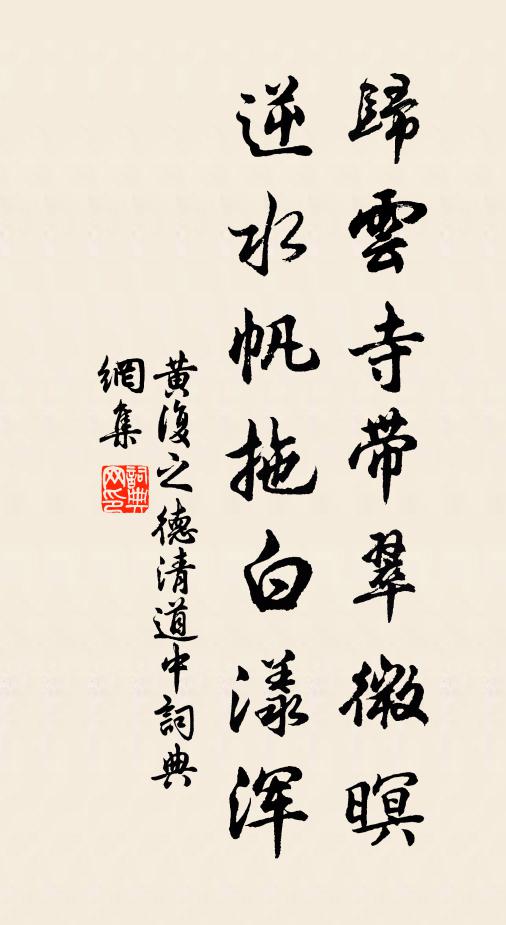 歸雲寺带翠微暝
逆水帆拖白漾浑
黄復之德清道中詞典
網集
詞典
网印